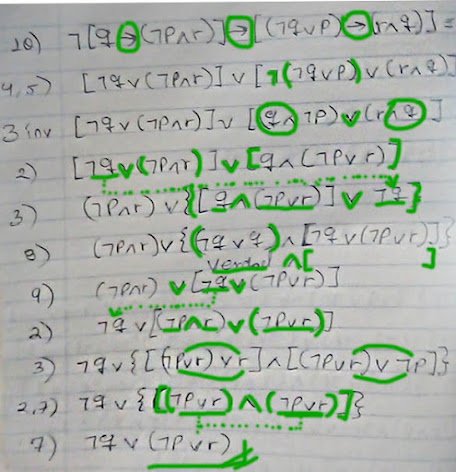 10) ¬[q→(¬p∧r)]→[(¬q∨p)→(r∧q)] =
4,5) [¬q∨(¬p∧r)]∨[¬(¬q∨p)∨(r∧q)]
3 inv [¬q∨(¬p∧r)]∨[(q∧¬p)∨(r∧q)]
2) [¬q∨(¬p∧r)]∨[q∧(¬p∨r)]
3) (¬p∧r)∨{[q∧(¬p∨r)]∨¬q}
8) (¬p∧r)∨{(¬q∨q)∧[¬q∨(¬p∨r)]}
Verdad ∧[ ]
9) (¬p∧r)∨[¬q∨(¬p∨r)]
2) ¬q∨[(¬p∧r)∨(¬p∨r)]
3) ¬q∨{[(¬p∨r)∨r]∧[(¬p∨r)∨¬p]}
2,7) ¬q∨{[(¬p∨r)∧(¬p∨r)]}
7) ¬q∨(¬p∨r)